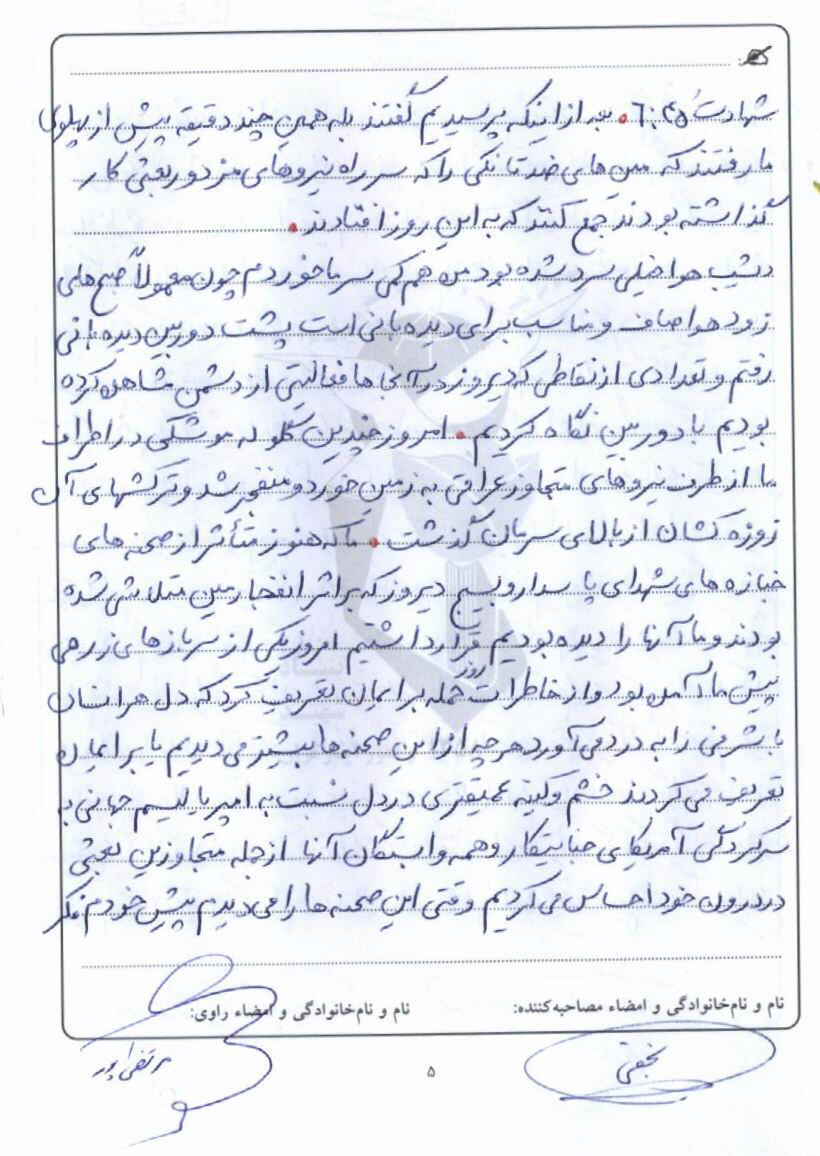 شهادت ۶:۴۵. بعد از اینکه پرسیدیم گفتند بله همین چند دقیقه پیش از پهلوی
ما رفتند که مین های ضد تانکی را که سر راه نیروهای مزدور بعثی کار
گذاشته بودند جمع کنند که به این روز افتادند.
دیشب هوا خیلی سرد شده بود من هم کمی سرما خوردم چون معمولاً صبح های
زود هوا صاف و مناسب برای دیده بانی است پشت دوربین دیده بانی
رفتم و تعدادی از نقاطی که دیروز در آنجا ها فعالیتی از دشمن مشاهده کرده
بودیم با دوربین نگاه کردیم. امروز چندین گلوله موشکی در اطراف
ما از طرف نیروهای متجاوز عراقی به زمین خورد و منفجر شد و ترکشهای آن
زوزه کشان از بالای سرمان گذشت. ما که هنوز متأثر از صحنه های
جنازه های شهدای پاسدار و بسیج دیروز که بر اثر انفجار مین متلاشی شده
بودند و ما آنها را دیده بودیم قرار داشتیم امروز یکی از سربازهای زرهی
پیش ما آمده بود و از خاطرات روز حمله برایمان تعریف کرد که دل هر انسان
با شرفی را به درد می آورد هر چه از این صحنه ها بیشتر می دیدیم یا برایمان
تعریف می کردند خشم و کینه عمیقتری در دل نسبت به امپریالیسم جهانی به
سرکردگی آمریکای جنایتکار و همه وابستگان آنها از جمله متجاوزین بعثی
در درون خود احساس می کردیم وقتی این صحنه ها را می دیدم پیش خودم فکر
نام و نام‌خانوادگی و امضاء مصاحبه‌کننده:
نام و نام‌خانوادگی و امضاء راوی:
نجفی
مرتضی پور
۵